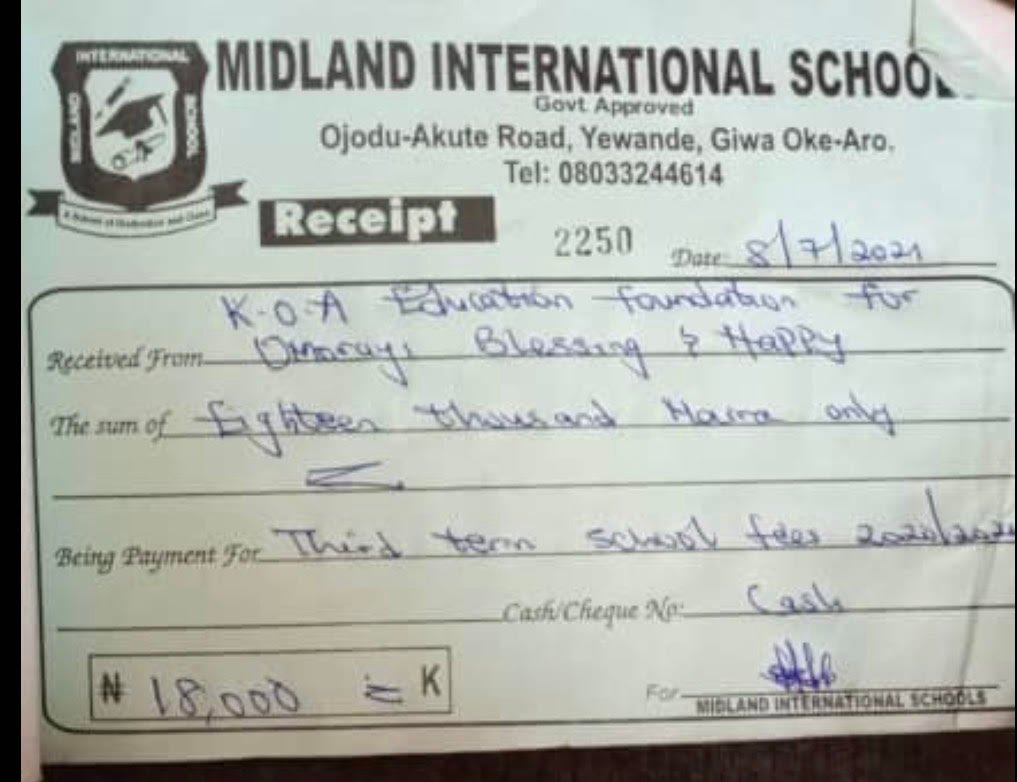 INTERNATIONAL
MIDLAND
SCHOOLS
MIDLAND INTERNATIONAL SCHOOL
Govt. Approved
Ojodu-Akute Road, Yewande, Giwa Oke-Aro.
Tel: 08033244614
Receipt
2250 Date: 8/7/2021
K.O.A Education foundation for
Received From Omorayi Blessing & Happy
The sum of Eighteen thousand Naira only
Being Payment For Third term school fees 2020/2021
Cash/Cheque No: Cash
₦ 18,000 = K
For
MIDLAND INTERNATIONAL SCHOOLS